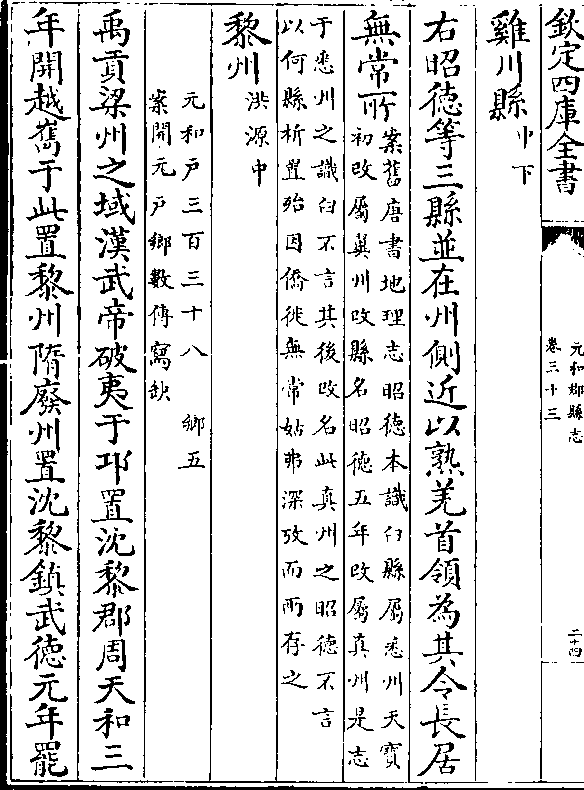 欽定四庫全書
元和郡縣志
卷三十三
二十四
雞川縣中下
右昭德等三縣並在州側近以熟羌首領為其令長居
無常所
案舊唐書地理志昭德本識臼縣屬悉州天寶
初改屬真州改縣名昭德五年改屬真州是志
于悉州之識臼不言其後改名此真州之昭德不言
以何縣析置殆因僑徙無常姑弗深攷而兩存之
黎州洪源中
元和戶三百三十八 鄉五
案開元戶鄉數傳寫缺
禹貢梁州之域漢武帝破夷于邛置沈黎郡周天和三
年開越嶲于此置黎州隋廢州置沈黎鎮武德元年罷